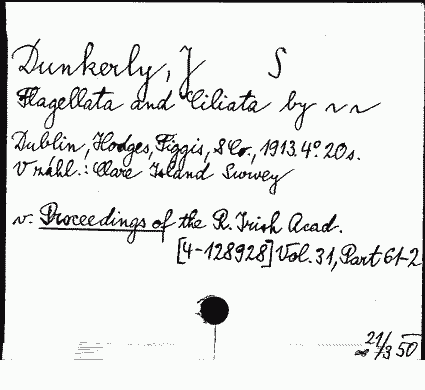 Dunkerly, J S
Flagellata and Ciliata by ~ ~
Dublin, Hodges, Figgis, & Co., 1913. 4°. 20 s.
V záhl.: Clare Island Survey
v. Proceedings of the R. Irish Acad.
[4-128928] Vol. 31, Part 61-2
21/3 50